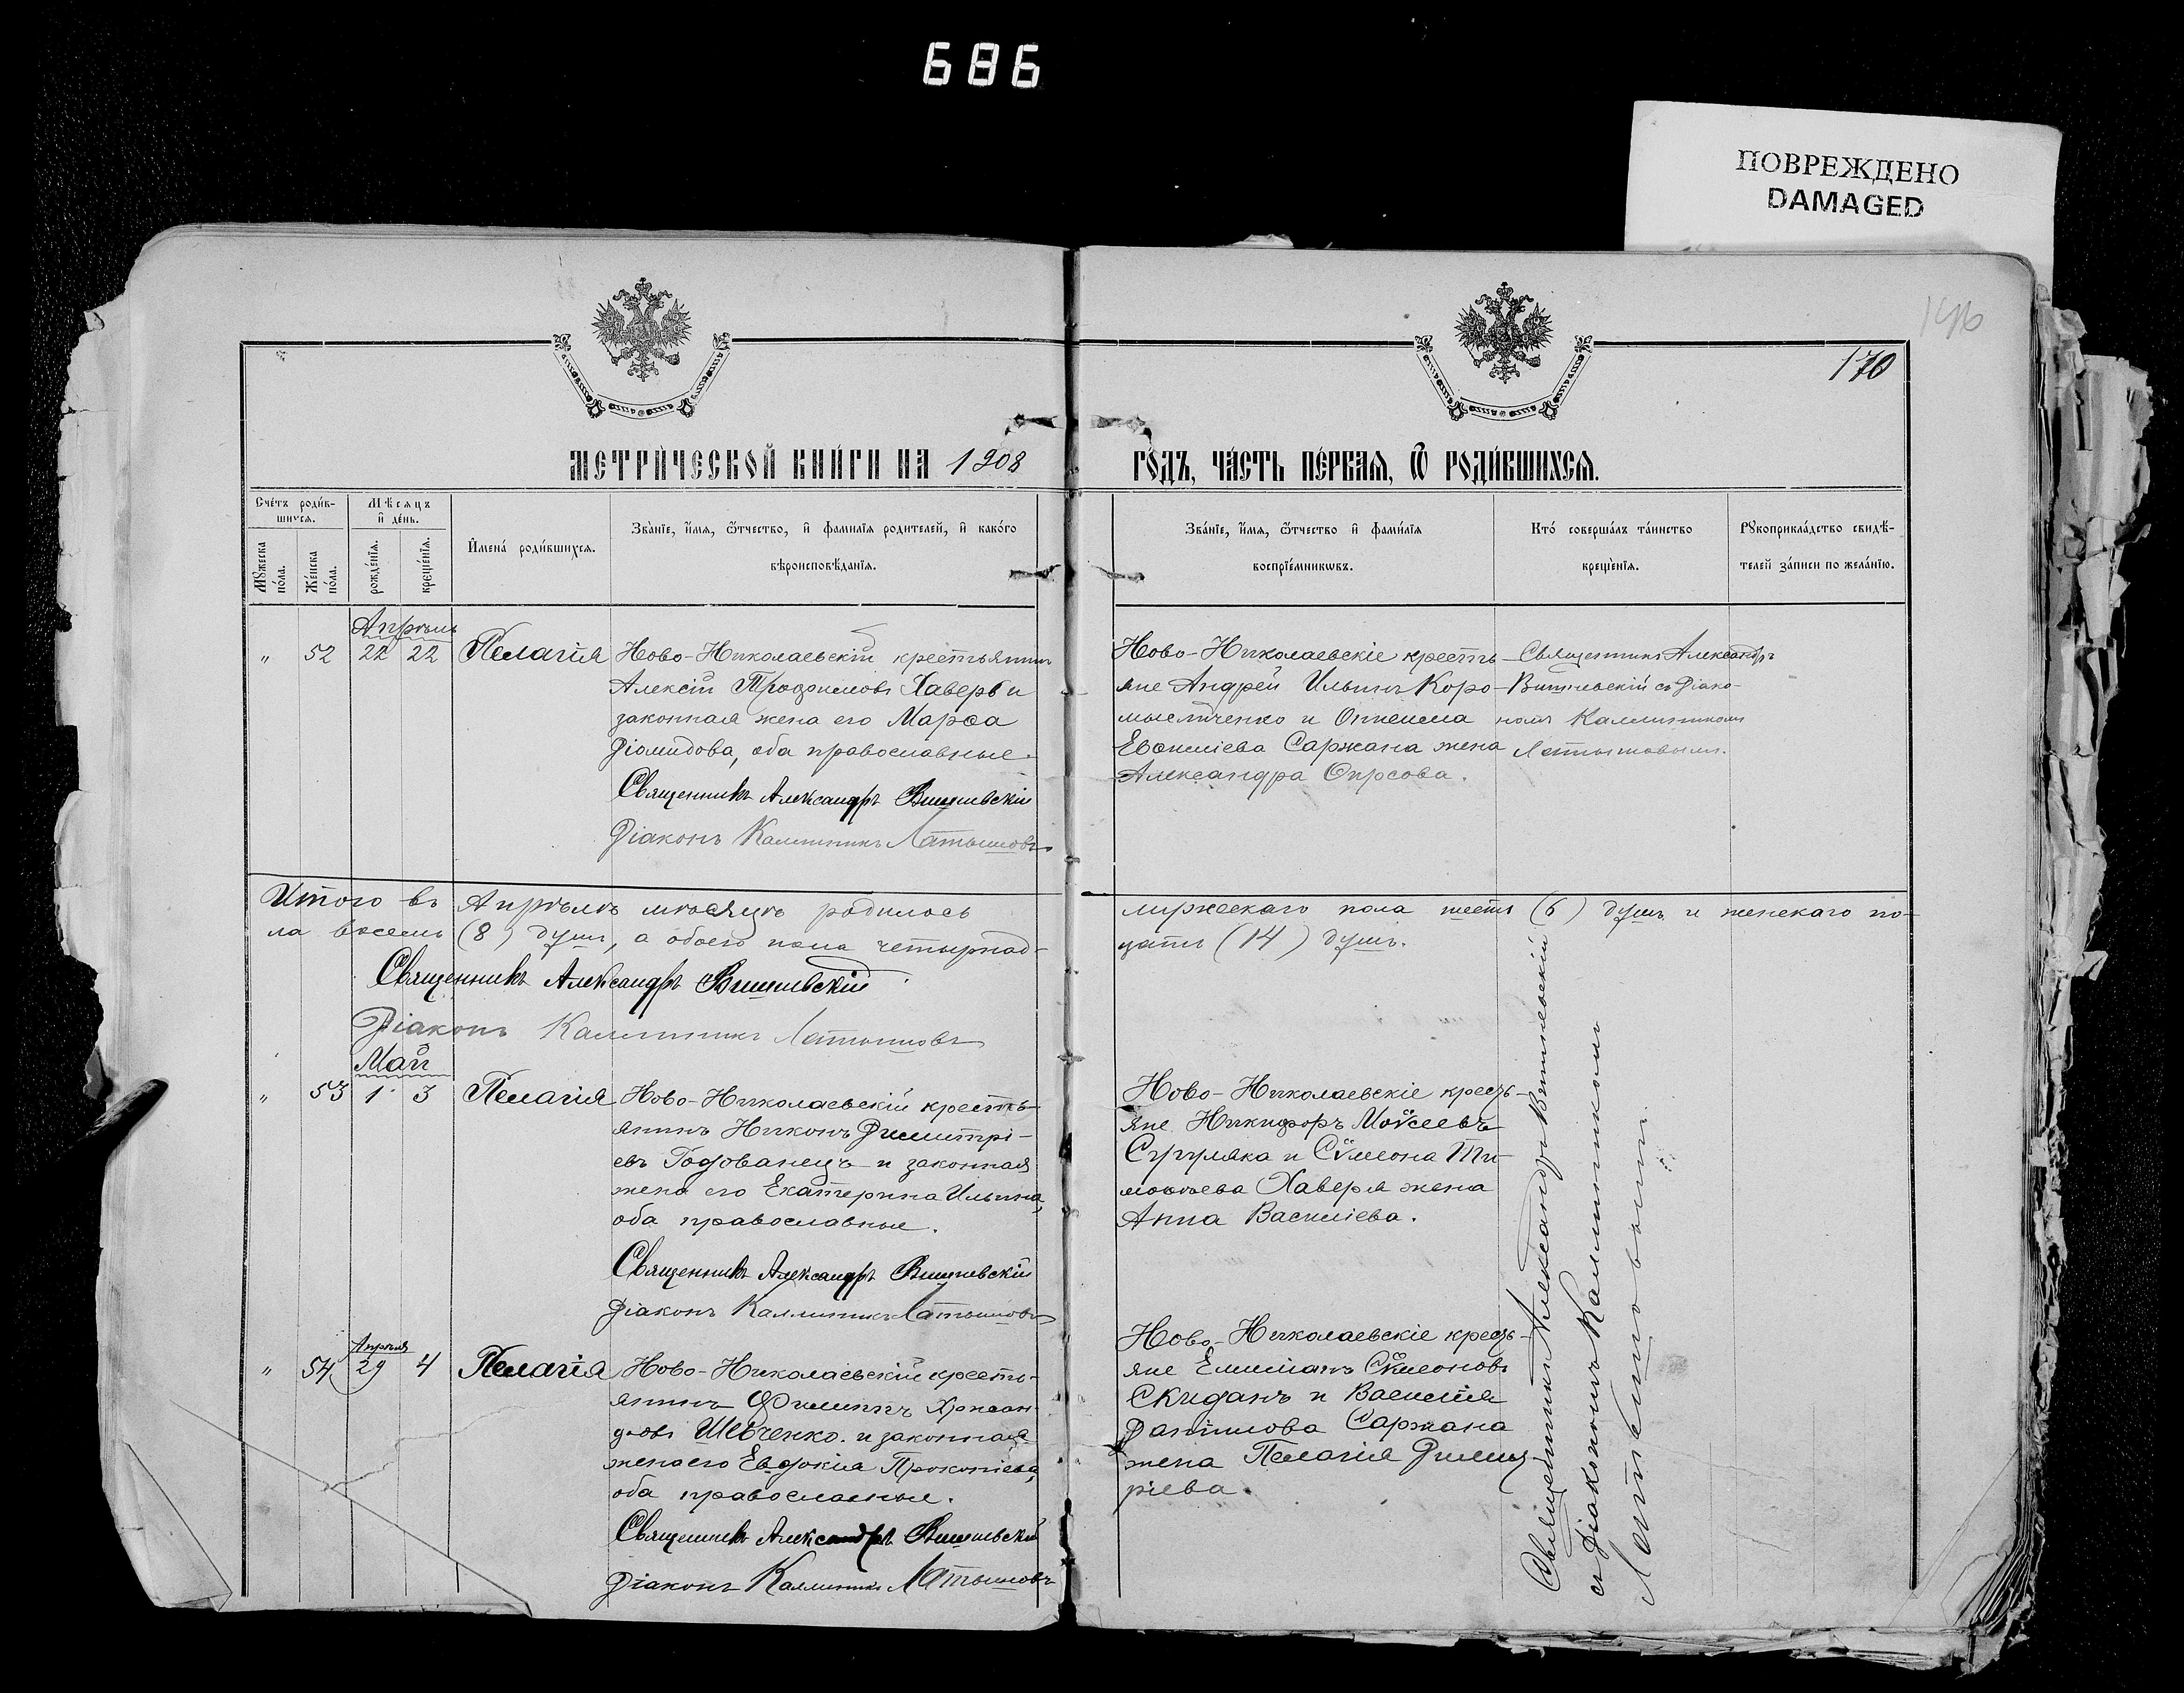 686
ПОВРЕЖДЕНО
DAMAGED
170
МЕТРИ́ЧЕСКОЙ КНИ́ГИ НА 1908
ГО́ДЪ, ЧА́СТЬ ПЕ́РВАЯ, Ѿ РОДИ́ВШИХСЯ.
Сче́тъ роди́в-
шихся.
Мѣсяцъ
и҆ де́нь.
Мꙋ́жеска
по́ла.
Же́нска
по́ла.
рожде́нїѧ.
креще́нїѧ.
И҆мена́ роди́вшихсѧ.
Зва́нїе, и҆́мѧ, ѻ҆́тчество, и҆ фами́лїѧ родителей, и҆ како́го
вѣроисповѣ́данїѧ.
Зва́нїе, и҆́мѧ, ѻ҆́тчество и҆ фами́лїѧ
воспрїе́мникѡвъ.
Кто́ соверша́лъ та́инство
креще́нїѧ.
Рꙋкоприкла́дство свидѣ́-
телей за́писи по жела́нїю.
Апрѣль
" 52 22 22 Пелагія
Ново-Николаевскій крестьянинъ
Алексій Трофимовъ Хаверь и
законная жена его Марѳа
Діомидова, оба православные.
Священникъ Александръ Вишневскій
Діаконъ Каллиникъ Латышовъ
Ново-Николаевскіе кресть-
яне Андрей Ильинъ Коро-
мысличенко и
Евѳиміева Саржана жена
Александра
Священникъ Александръ
Вишневскій съ Діако-
номъ Каллиникомъ
Латышовымъ.
Итого въ Апрѣлѣ мѣсяцѣ родилось мужескаго пола шесть (6) душъ и женскаго по-
ла восемь (8) душъ, а обоего пола четырнад-
цать (14) душъ.
Священникъ Александръ Вишневскій
Діаконъ Каллиникъ Латышовъ
Май
" 53 1 3 Пелагія
Ново-Николаевскій кресть-
янинъ Никонъ Димитрі-
евъ Годованецъ и законная
жена его Екатерина Ильина,
оба православные.
Священникъ Александръ Вишневскій
Діаконъ Каллиникъ Латышовъ
Ново-Николаевскіе кресть-
яне Никифоръ Моѵсеевъ
Сугуляка и Сѵмеона Ти-
моѳеева Хаверя жена
Анна Василіева.
Апрѣля
" 54 29 4 Пелагія
Ново-Николаевскій кресть-
янинъ Филиппъ Хрисан-
фовъ Шевченко и законная
жена его Евдокія Прокопіева,
оба православные.
Священникъ Александръ Вишневскій
Діаконъ Каллиникъ Латышовъ
Ново-Николаевскіе кресть-
яне Емиліанъ Сѵмеоновъ
Скиданъ и Василія
Даніилова Саржана
жена Пелагія Димит
ріева.
Священникъ Александръ Вишневскій
съ Діакономъ Каллиникомъ
Латышовымъ.